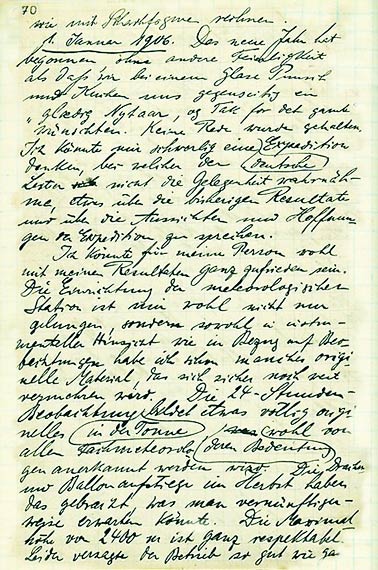 70
wie mit Schachfiguren rechnen.
1. Januar 1906. Das neue Jahr hat
begonnen ohne andere Feierlichkeit
als daß wir bei einem Glase Punsch
und Kuchen uns gegenseitig ein
„glædig Nytaar, og Tak for det gamle
wünschten. Keine Rede wurde gehalten.
Ich könnte mir schwerlich eine Expedition
denken, bei welcher der deutsche
Leiter nicht die Gelegenheit wahrnäh-
me, etwas über die bisherigen Resultate
und über die Aussichten und Hoffnun-
gen der Expedition zu sprechen.
Ich könnte für meine Person wohl
mit meinen Resultaten ganz zufrieden sein.
Die Einrichtung der meteorologischen
Station ist mir wohl nicht nur
gelungen, sondern sowohl in instru-
menteller Hinsicht wie in Bezug auf Beo-
bachtungen habe ich schon manches origi-
nelle Material, das sich sicher noch weit
vermehren wird. Die 24-Stunden-
Beobachtung bildet etwas völlig origi
nelles in der Tonne wohl von
allen Fachmeteorolo deren Bedeutung
gen anerkannt werden wird. Die Drachen
und Ballonaufstiege im Herbst haben
das gebracht was man vernünftiger-
weise erwarten könnte. Die Maximal
höhe von 2400 m ist ganz respektabel.
Leider versagte der Betrieb so gut wie ga